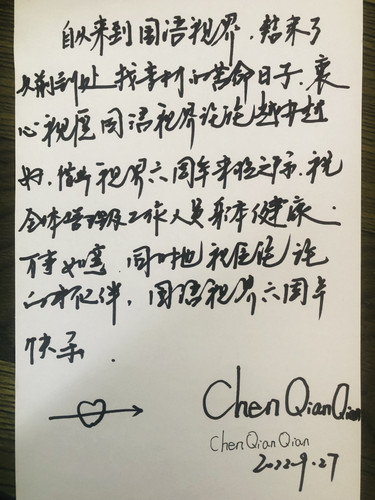 自从来到国语视界,结束了
从前到处找素材的苦命日子,衷
心祝愿国语视界论坛越办越
好,借此视界六周年来临之际,祝
全体管理及工作人员身体健康.
万事如意,同时也祝愿论坛
的小伙伴,国语视界六周年
快乐.
Chen QianQian
Chen QianQian
2022.9.27